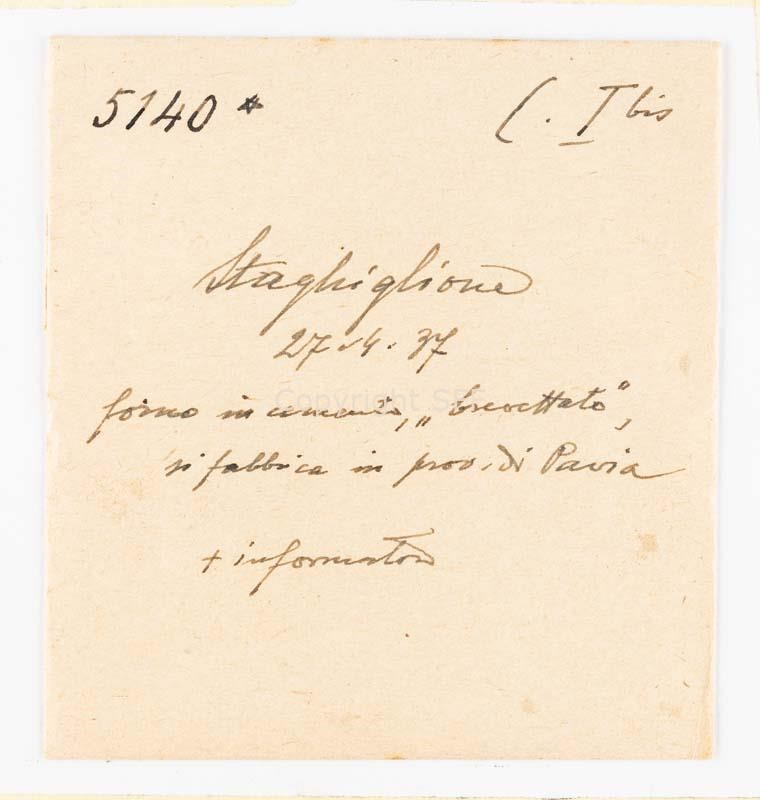 5140 * C. I bis
Staghiglione
27.4.37
forno in cemento, „brevettato",
si fabbrica in prov. di Pavia
+ informatori
Copyright